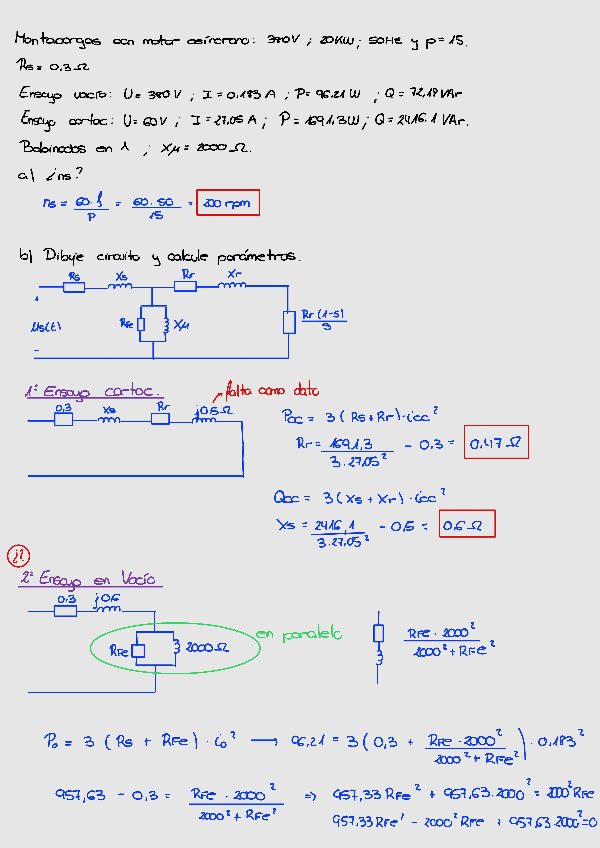 Montacargas con motor asíncrono: 380V ; 20KW ; 50Hz y p=15.
Rs = 0.3 Ω
Ensayo vacío: U = 380 V ; I = 0.183 A ; P = 96.21 W ; Q = 72,19 VAr
Ensayo cortoc: U = 60 V ; I = 27.05 A ; P = 1691,3 W ; Q = 2416.1 VAr.
Bobinados en λ ; Xμ = 2000 Ω.
a) ¿ns?
ns = 60·f / p = 60·50 / 15 = 200 rpm
b) Dibuje circuito y calcule parámetros.
Rs Xs Rr Xr
+ μs(t) - RFe Xμ Rr(1-s) / s
1º Ensayo cortoc. falta como dato
0.3 Xs Rr j0.5Ω
Pcc = 3 (Rs+Rr)·icc²
Rr = 1691,3 / 3·27,05² - 0.3 = 0.47 Ω
Qcc = 3(Xs + Xr)·icc²
Xs = 2416,1 / 3·27,05² - 0.5 = 0.6 Ω
¿?
2º Ensayo en Vacío
0.3 j0.6
RFe 2000Ω en paralelo RFe·2000² / 2000² + RFe²
Po = 3 (Rs + RFe)·io² → 96.21 = 3(0,3 + RFe·2000² / 2000² + RFe²)·0.183²
957,63 - 0.3 = RFe·2000² / 2000² + RFe² ⇒ 957,33 RFe² + 957,63·2000² = 2000²RFe
957.33 RFe² - 2000²RFe + 957,63·2000² = 0